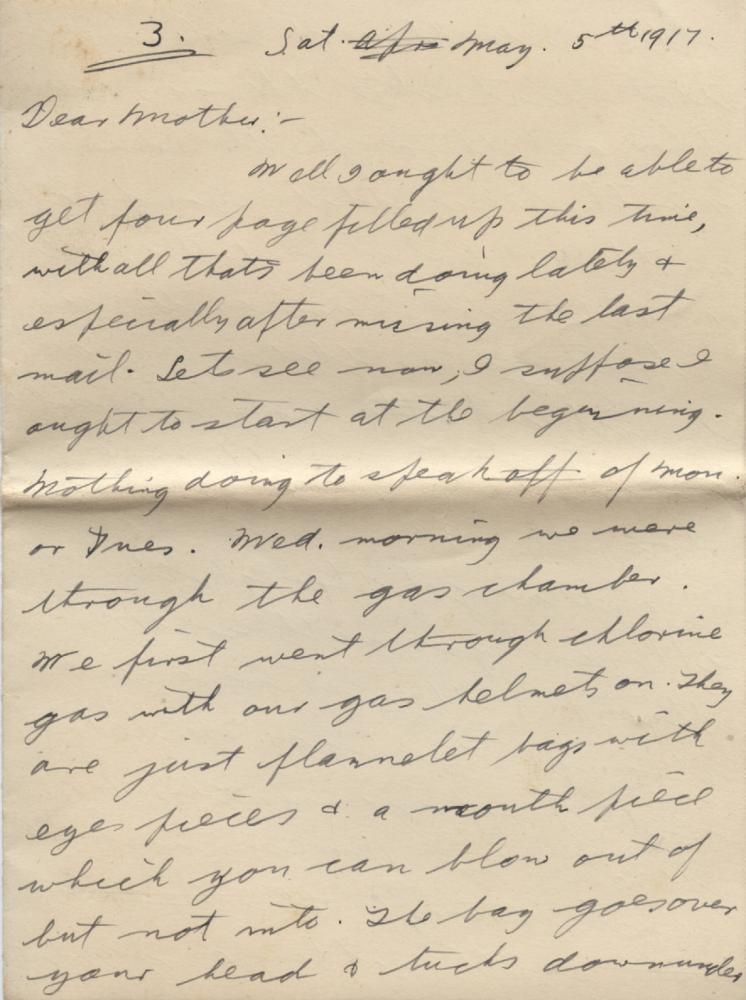 3. Sat. Apri May. 5th 1917.
Dear Mother:-
Well I ought to be able to
get four page filled up this time,
with all thats been doing lately &
especially after missing the last
mail. Lets see now, I suppose I
ought to start at the beginning.
Nothing doing to speak off of Mon.
or Tues. Wed. morning we were
through the gas chamber.
We first went through chlorine
gas with our gas helmets on. They
are just flannelet bags with
eyes pieces & a mouth piece
which you can blow out of
but not into. The bag goes over
your head & tucks down under